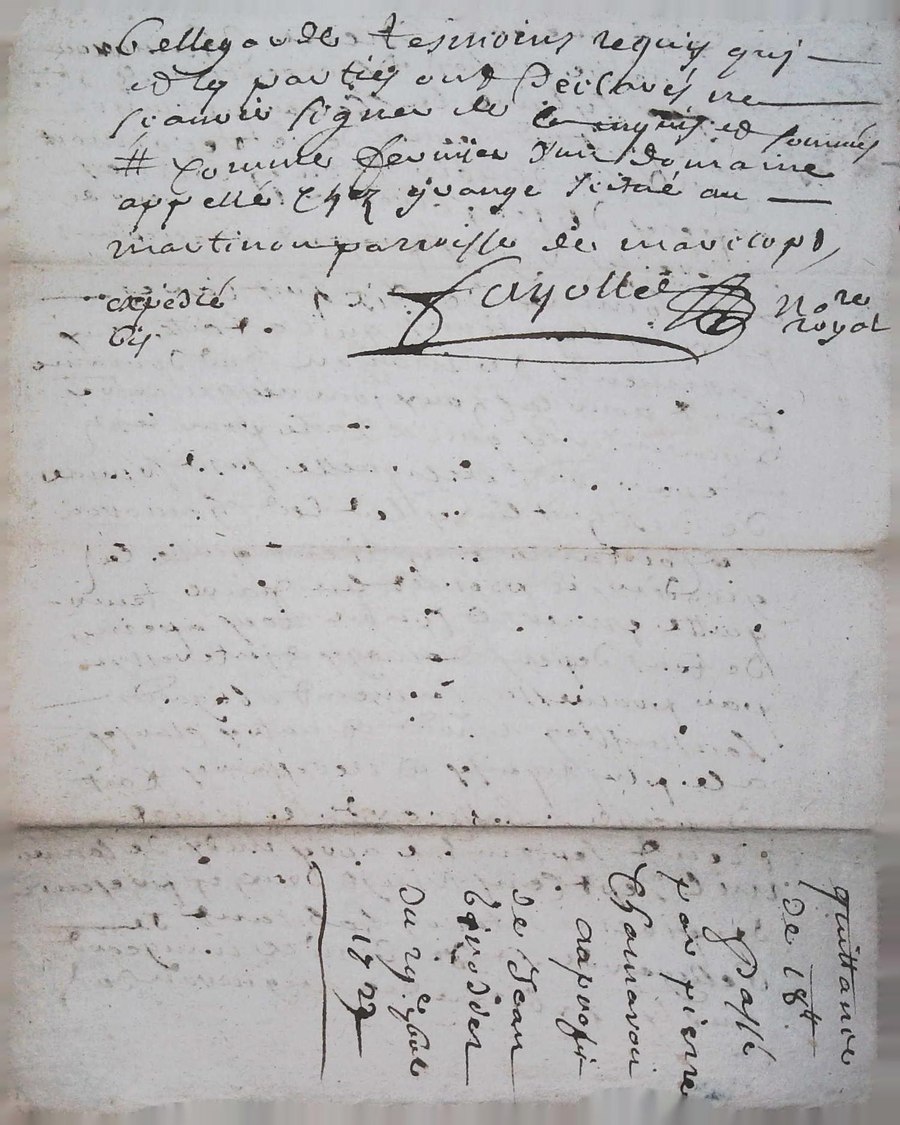 Bellegarde tesmoins requis qui
et les parties ont declarés ne
scavoir signer de ce enquis et sommés
# comme fermier d'un domaine
appellé chez grange scitué au
martinou parroisse de marclopt
expedié
Fayolle Nore
royal
quittance
de 18#
passé
par pierre
Chomavon
au profit
de Jean
du 29e